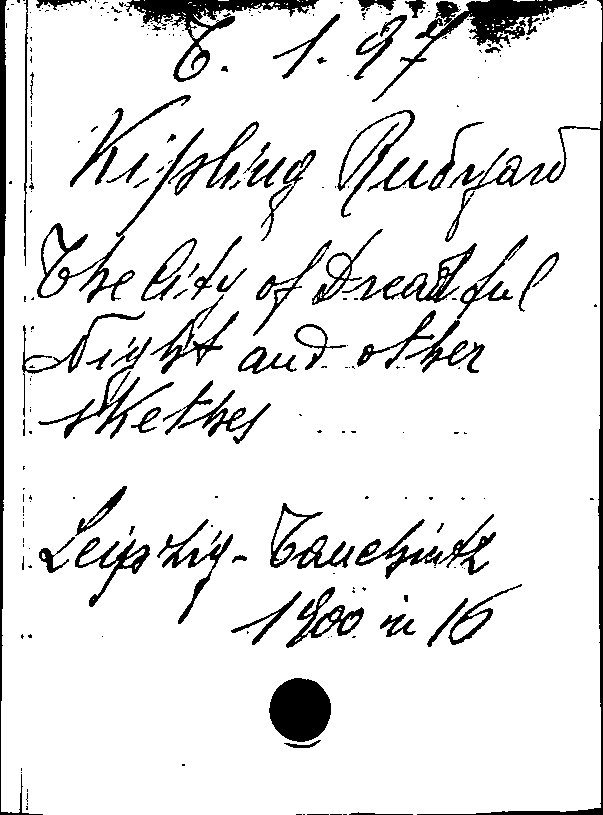 T. 1. 97
Kipling Rudyard
The City of Dreadful
Night and other
sKethes
Leipzig - Tauchnitz
1900 in 16